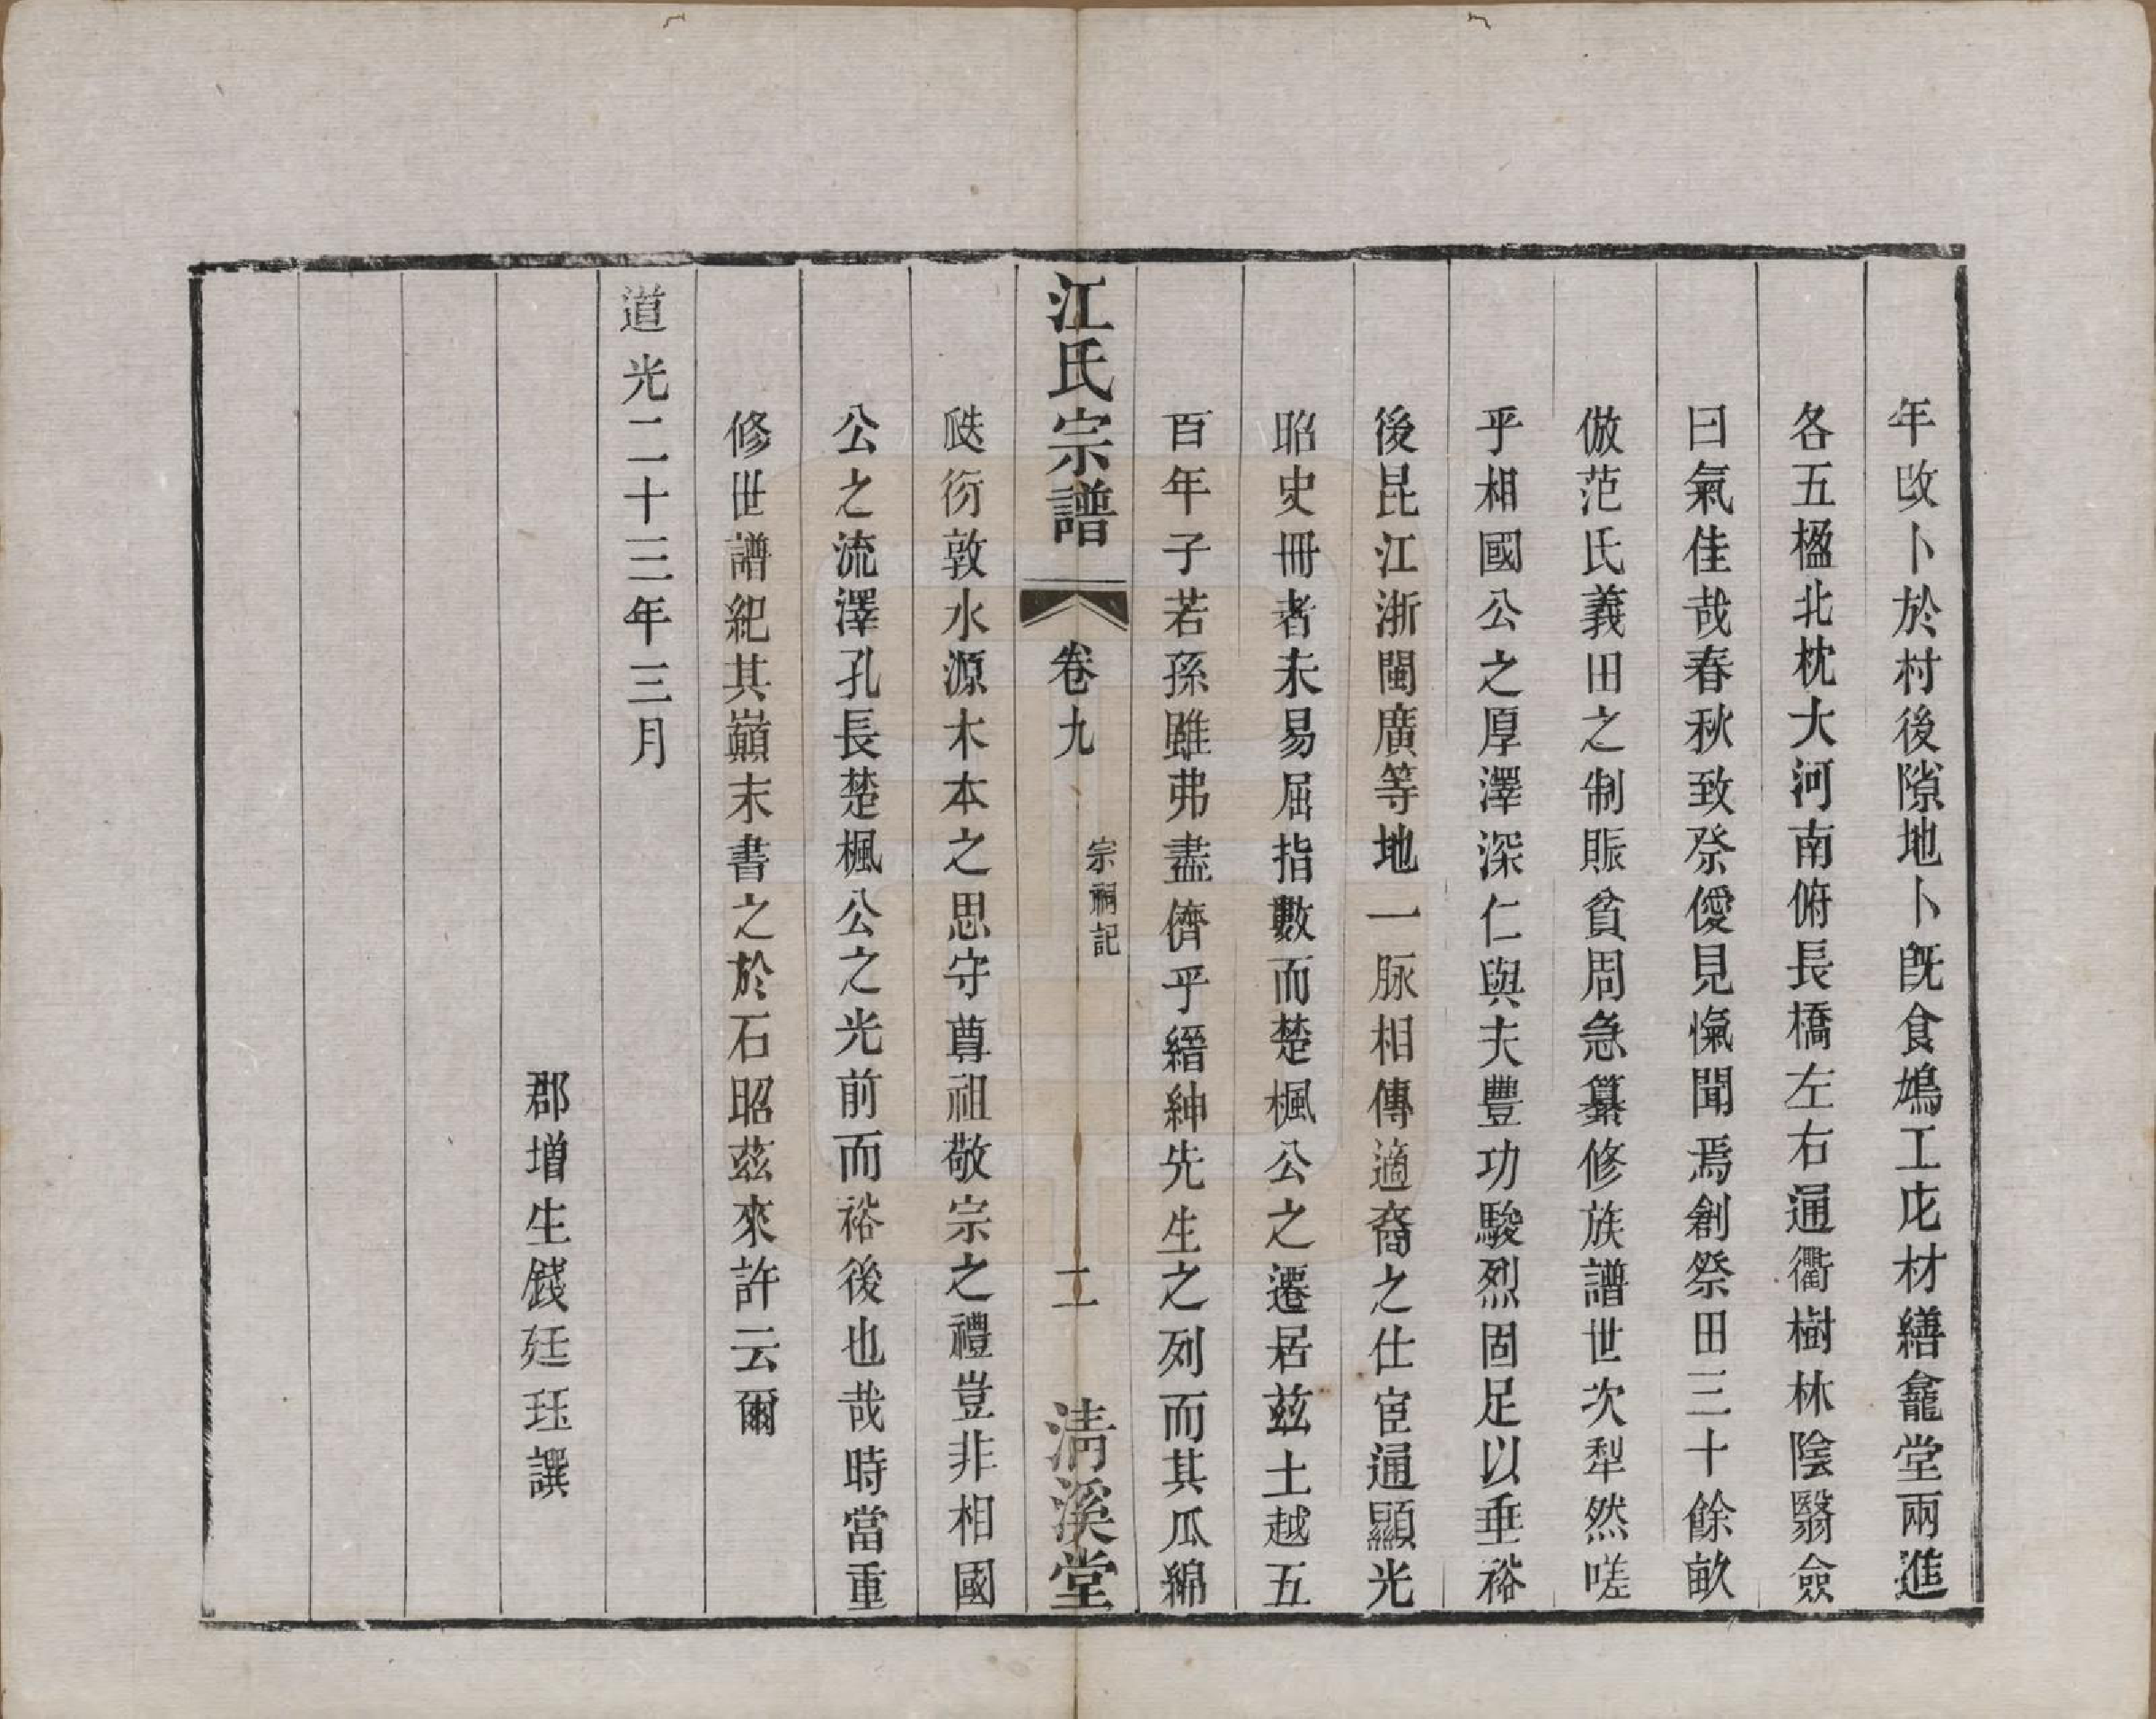 年改卜於村後隙地卜旣食鳩工庀材繕龕堂兩進
各五楹北枕大河南俯長橋左右通衢樹林陰翳僉
曰氣佳哉春秋致祭僾見愾聞焉創祭田三十餘畝
倣范氏義田之制賑貧周急纂修族譜世次犁然嗟
乎相國公之厚澤深仁與夫豐功駿烈固足以垂裕
後昆江浙閩廣等地一脉相傳適裔之仕宦通顯光
昭史冊者未易屈指數而楚楓公之遷居茲土越五
百年子若孫雖弗盡儕乎縉紳先生之列而其瓜綿
江氏宗譜 卷九 宗祠記 二 清溪堂
瓞衍敦水源木本之思守尊祖敬宗之禮豈非相國
公之流澤孔長楚楓公之光前而裕後也哉時當重
修世譜紀其巔末書之於石昭茲來許云爾
道光二十三年三月
郡增生錢廷珏譔